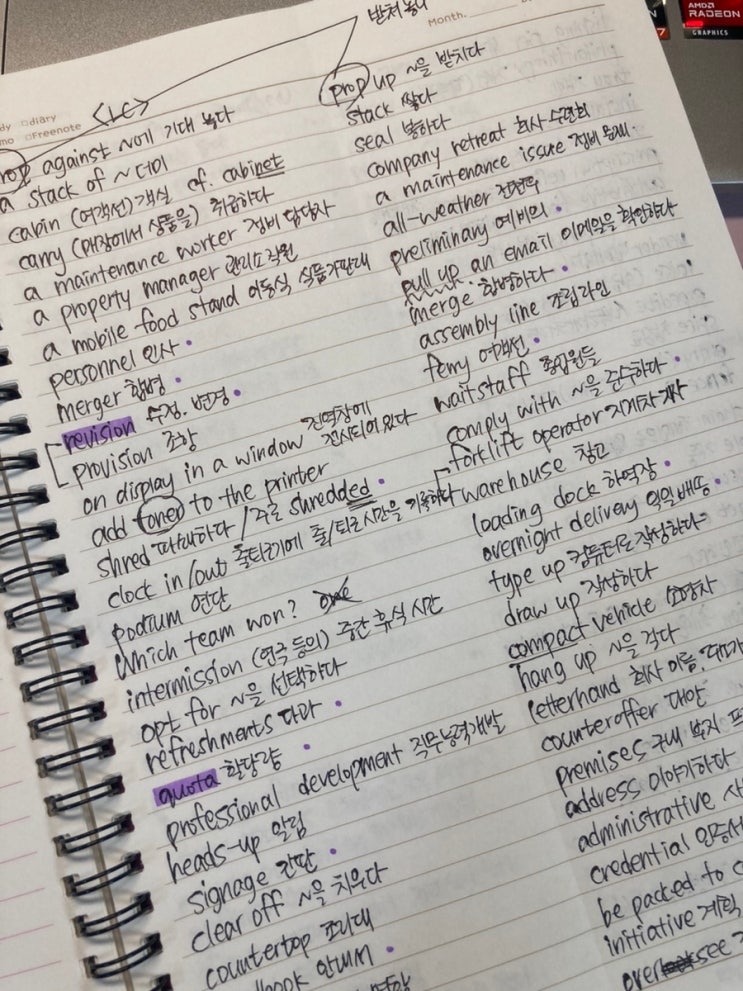 받쳐놓다
Month.
AMD
RADEON
GRAPHICS
diary
Freenote
<LC>
prop against ~에 기대 놓다
a stack of ~ 더미
cabin (여객선) 객실 cf. cabinet
carry (매장에서 상품을) 취급하다
a maintenance worker 정비 담당자
a property manager 관리소 직원
a mobile food stand 이동식 식품가판대
personnel 인사
merger 합병
revision 수정. 변경
provision 조항
on display in a window 진열창에 전시되어 있다
add toner to the printer
shred 파쇄하다 / 주로 shredded
clock in/out 출퇴근기에 출/퇴근시간을 기록하다
podium 연단
Which team won?
intermission (연극 등의) 중간 휴식 시간
opt for ~을 선택하다
refreshments 다과
quota 할당량
professional development 직무능력개발
heads-up 알림
signage 간판
clear off ~을 치우다
countertop 조리대
안내서
prop up ~을 받치다
stack 쌓다
seal 봉하다
company retreat 회사 수련회
a maintenance issue 정비 문제
all-weather 전천후
preliminary 예비의
pull up an email 이메일을 확인하다
merge 합병하다
assembly line 조립라인
ferry 여객선
waitstaff 종업원들
comply with ~을 준수하다
forklift operator 지게차 기사
warehouse 창고
loading dock 하역장
overnight delivery 익일 배송
type up 컴퓨터로 작성하다
draw up 작성하다
compact vehicle 소형차
hang up ~을 걸다
letterhand 회사 이름.
counteroffer 대안
premises 구내
address 이야기하다
administrative
credential 인증서
be packed to
initiative 계획
oversee